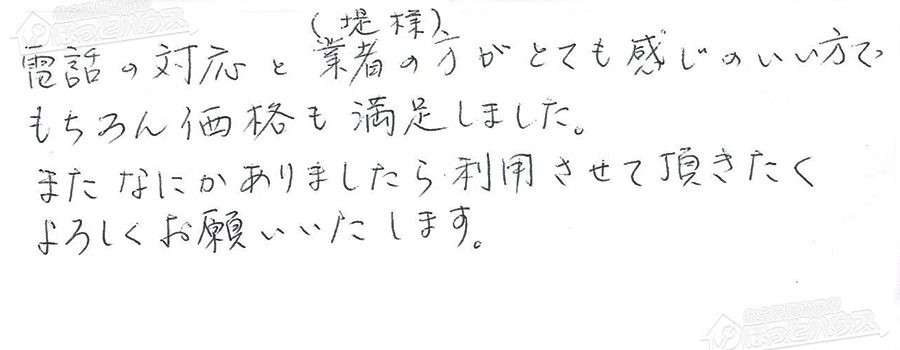 住宅設備専門店
ほっとハウス
(堤様)
電話の対応と業者の方がとても感じのいい方で、
もちろん価格も満足しました。
またなにかありましたら利用させて頂きたく
よろしくお願いいたします。
住宅設備専門店
ほっとハウス